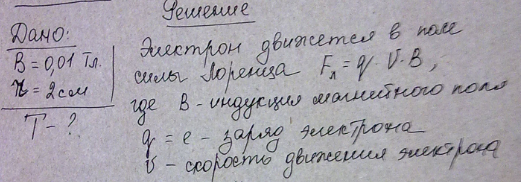 Решение
Дано:
B = 0,01 Тл.
r = 2 см
T - ?
Электрон движется в поле
силы Лоренца Fл = q · V · B,
где B - индукция магнитного поля
q = e - заряд электрона
v - скорость движения электрона